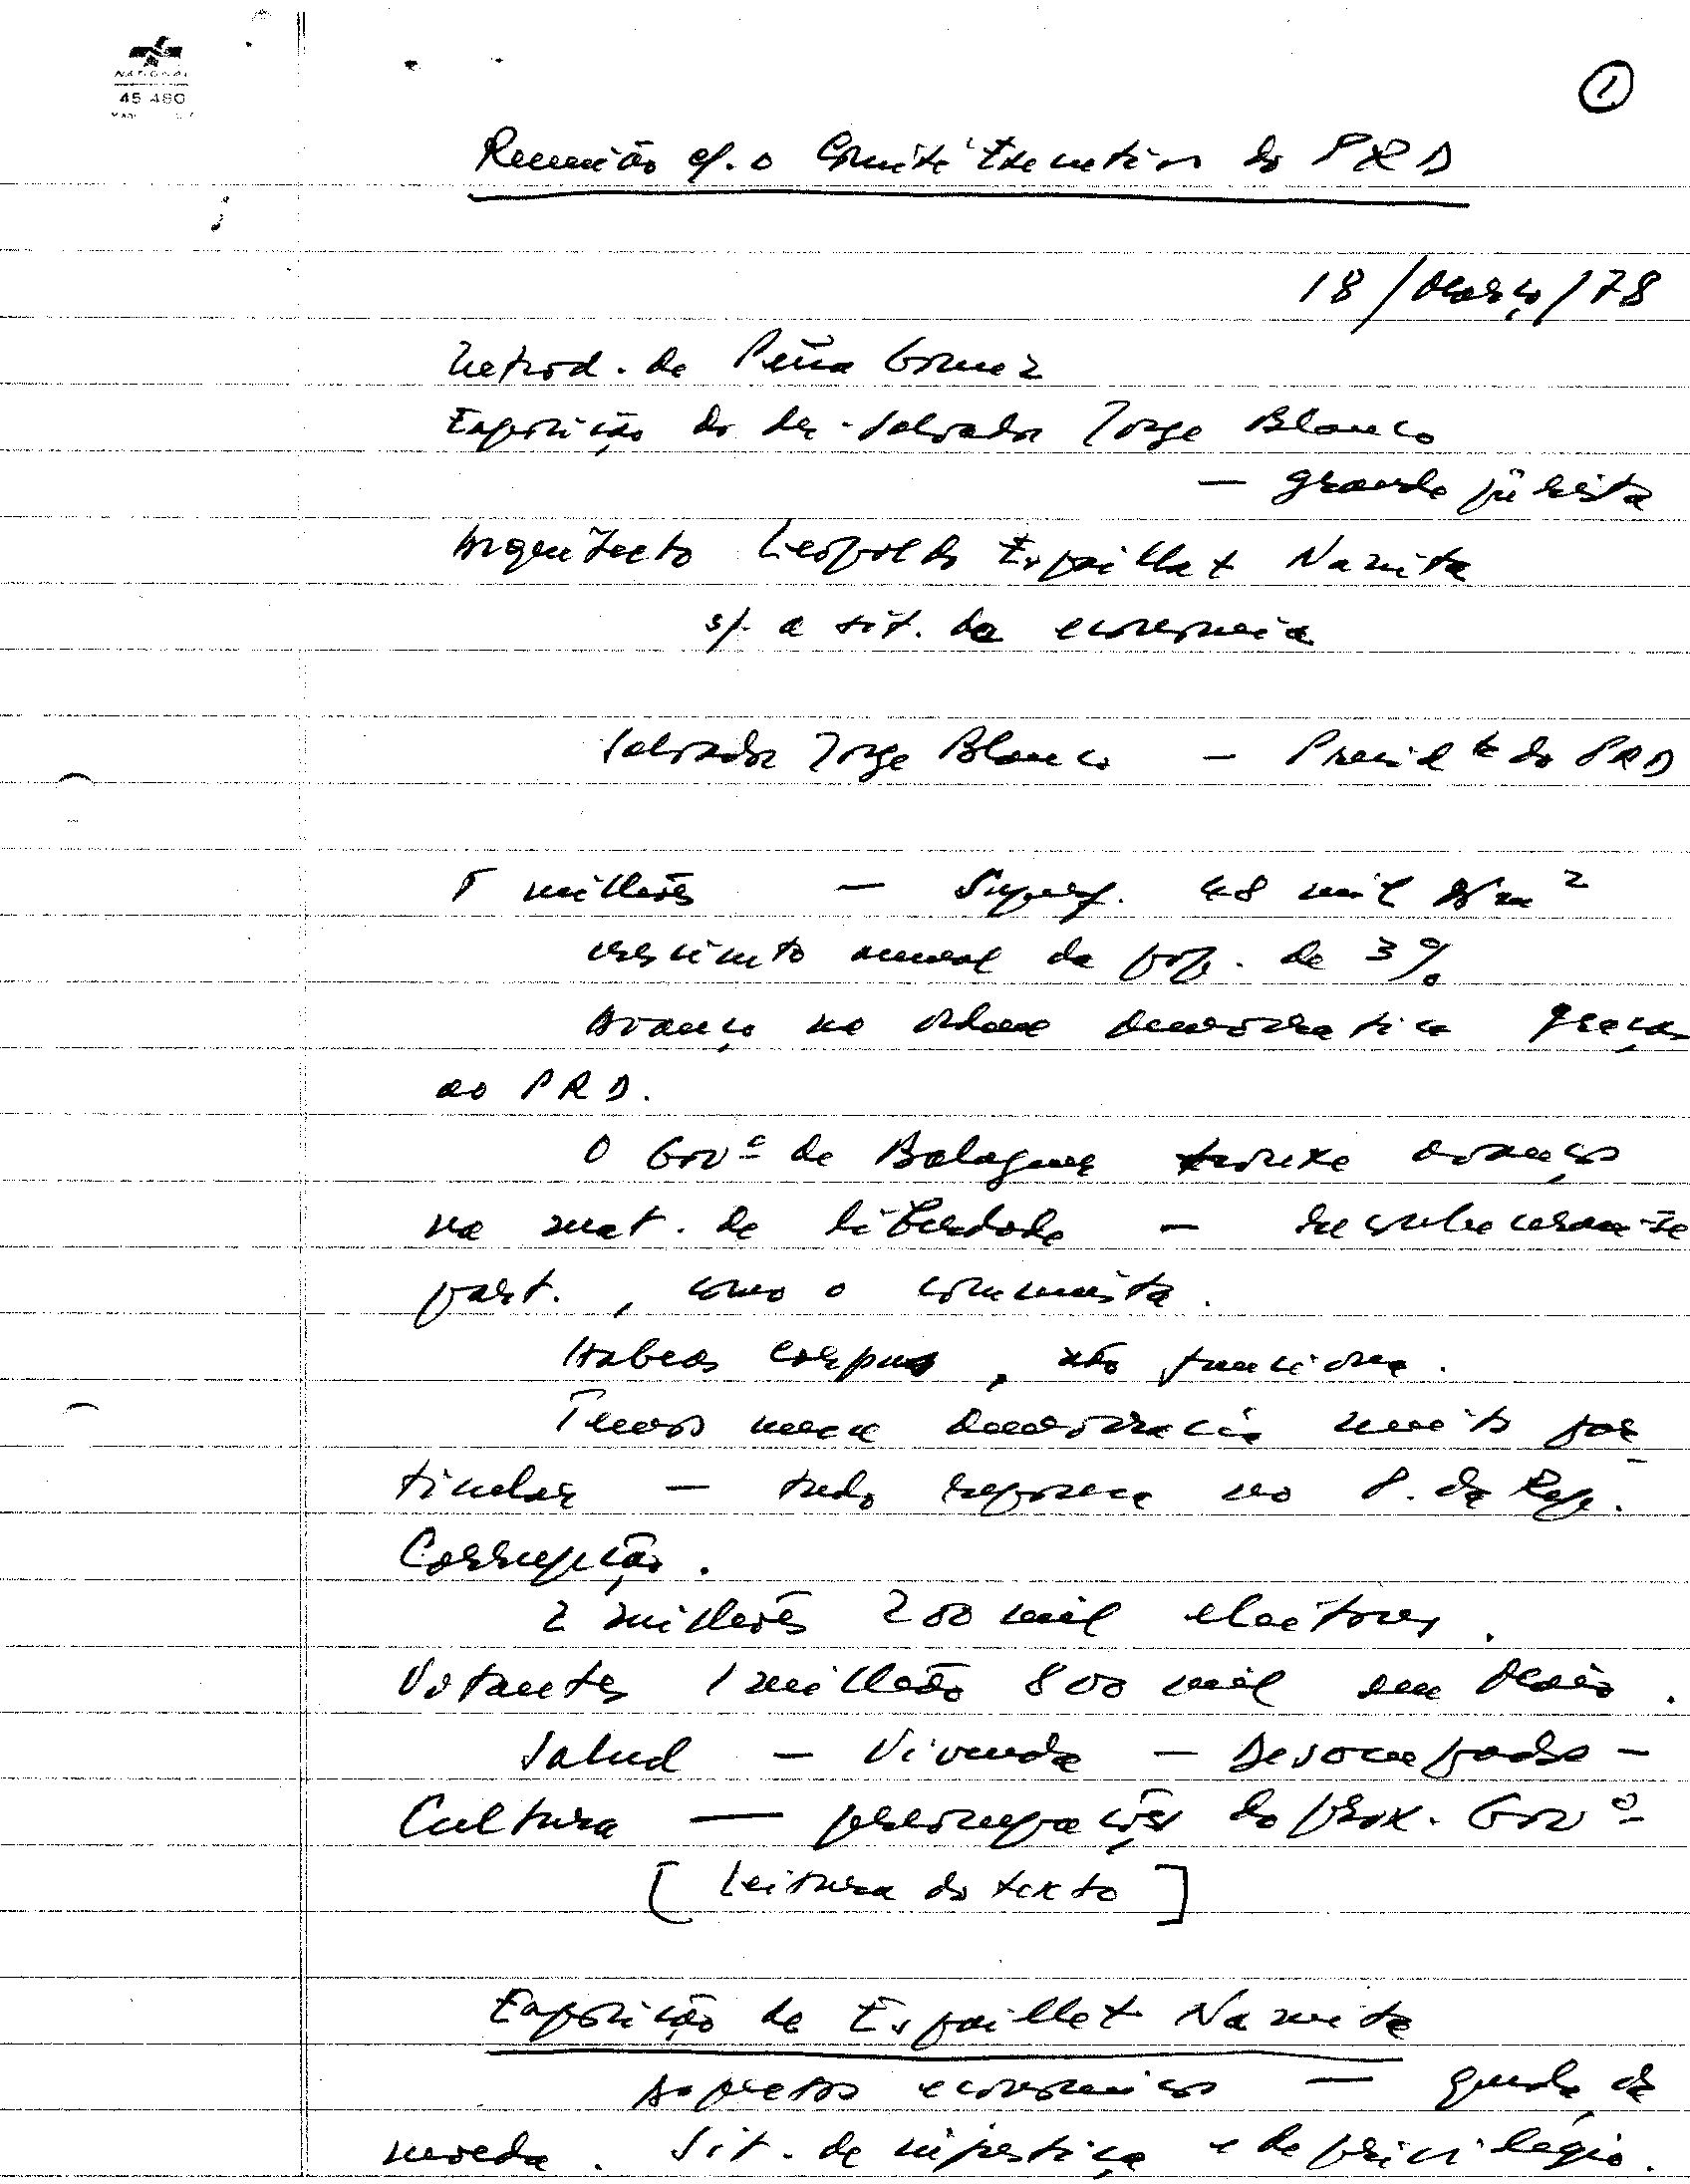 NATIONAL
45 480
1
Reunião c/. o Comité Executivo do PRD
18/Março/78
Introd. de Peña Gomez
Exposição do dr. Salvador Jorge Blanco
— grande jurista
Arquitecto Leopoldo Espaillat Nanita
s/. a sit. da economia
Salvador Jorge Blanco — Presid te do PRD
5 milhões — Superf. 48 mil Km2
crescimto anual da pop. de 3%
Avanço na ordem democratica graças
ao PRD.
O Govº de Balaguer trouxe avanços
na mat. de liberdade — reconheceram-se
part., como o comunista.
Habeas corpus, não funciona.
Temos uma democracia muito par-
ticular — tudo repousa no P. da Rep.
Corrupção.
2 milhões 200 mil eleitores.
Votantes 1 milhão 800 mil em Maio.
Salud — Vivenda — Desocupados —
Cultura — preocupações do prox. Govº
[Leitura do texto]
Exposição de Espaillat Nanita
Aspectos economicos — queda da
moeda. Sit. de injustiça e de privilégio.